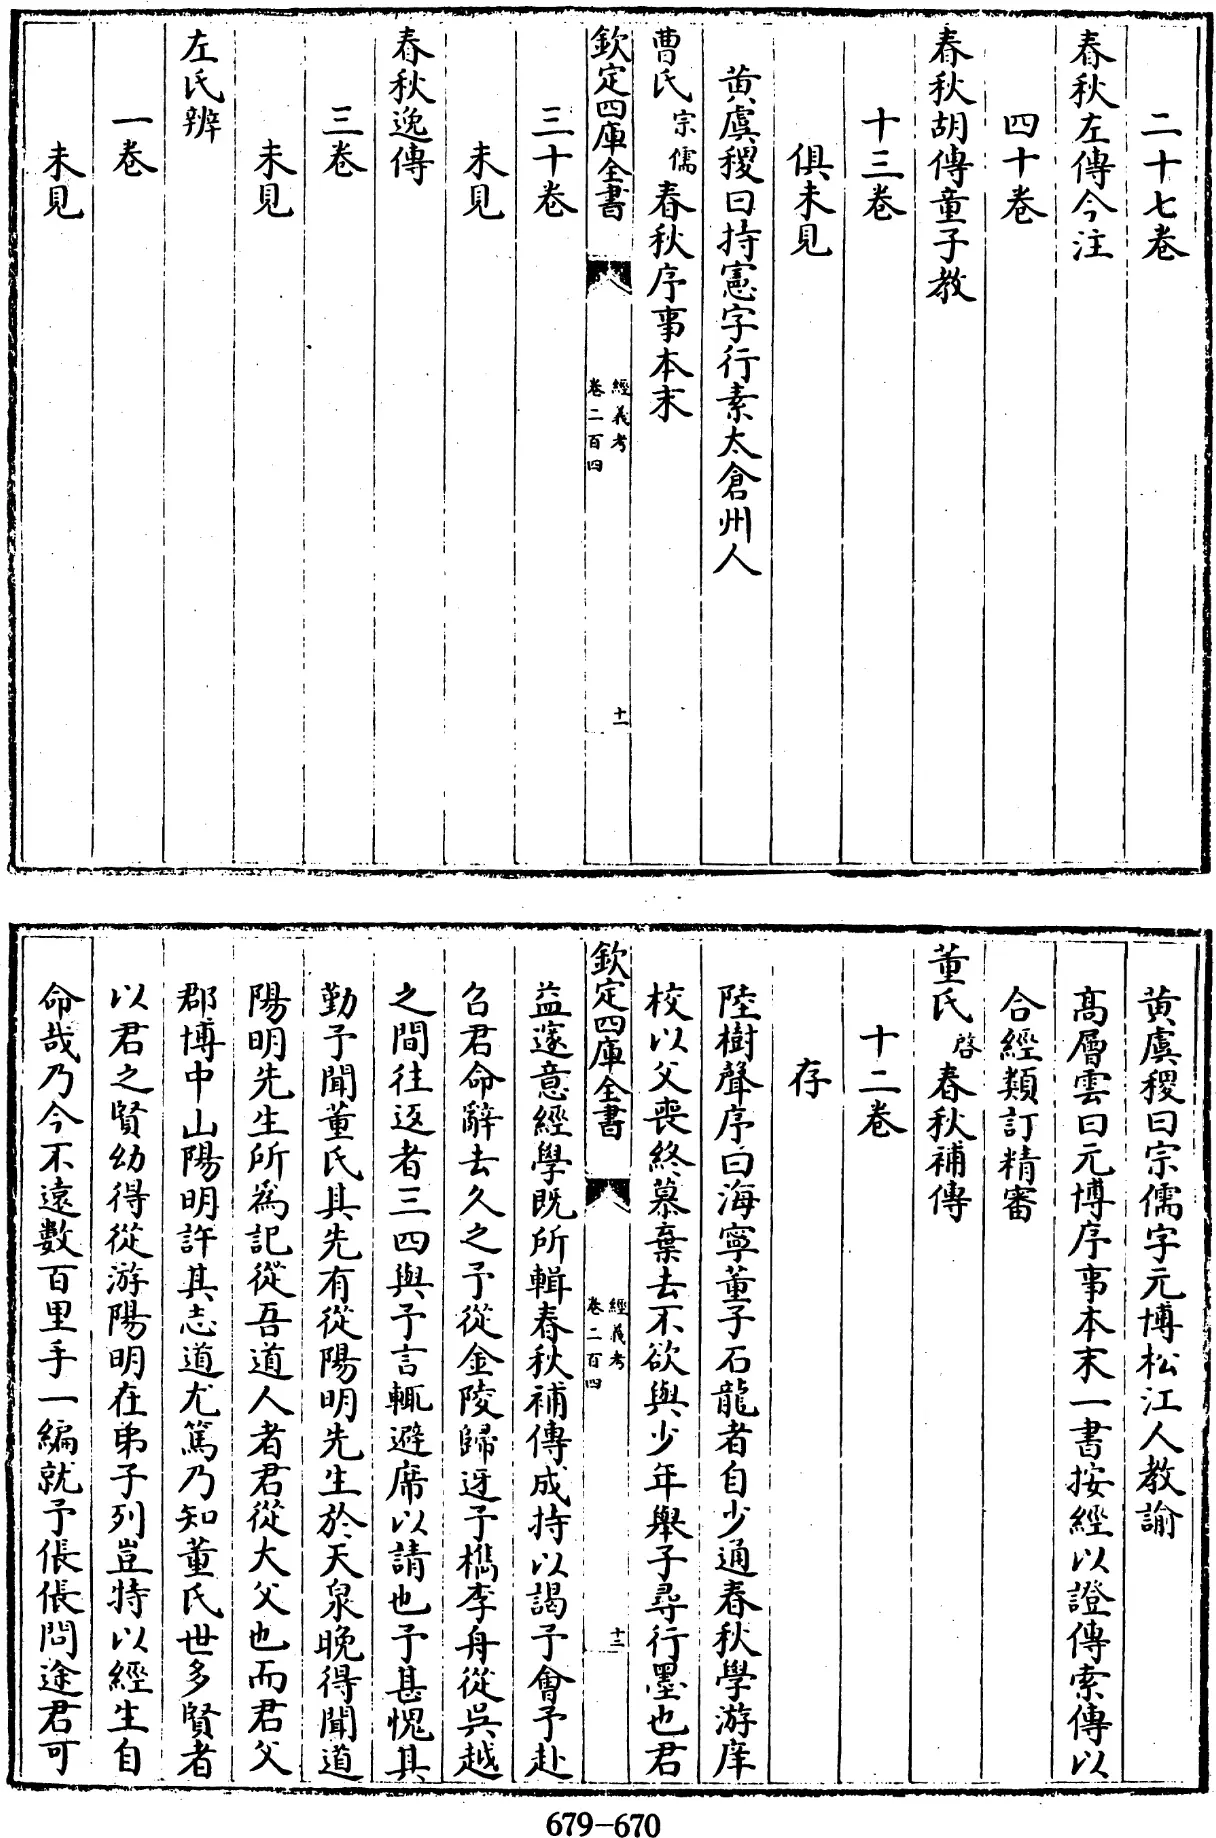 二十七卷
春秋左傳今注
四十卷
春秋胡傳童子教
十三卷
俱未見
黄虞稷曰持憲字行素太倉州人
曹氏宗儒春秋序事本末
欽定四庫全書
經義考
卷二百四
十一
三十卷
未見
春秋逸傳
三卷
未見
左氏辨
一卷
未見
黄虞稷曰宗儒字元博松江人教諭
髙層雲曰元博序事本末一書按經以證傳索傳以
合經類訂精審
董氏啓春秋補傳
十二卷
存
陸樹聲序曰海寧董子石龍者自少通春秋學游庠
校以父喪終慕棄去不欲與少年舉子尋行墨也君
欽定四庫全書
經義考
卷二百四
十二
益邃意經學既所輯春秋補傳成持以謁予會予赴
召君命辭去久之予從金陵歸迓予檇李舟從吳越
之間往返者三四與予言輒避席以請也予甚愧其
勤予聞董氏其先有從陽明先生於天泉晚得聞道
陽明先生所為記從吾道人者君從大父也而君父
郡博中山陽明許其志道尤篤乃知董氏世多賢者
以君之賢幼得從游陽明在弟子列豈特以經生自
命哉乃今不遠數百里手一編就予倀倀問途君可
679-670